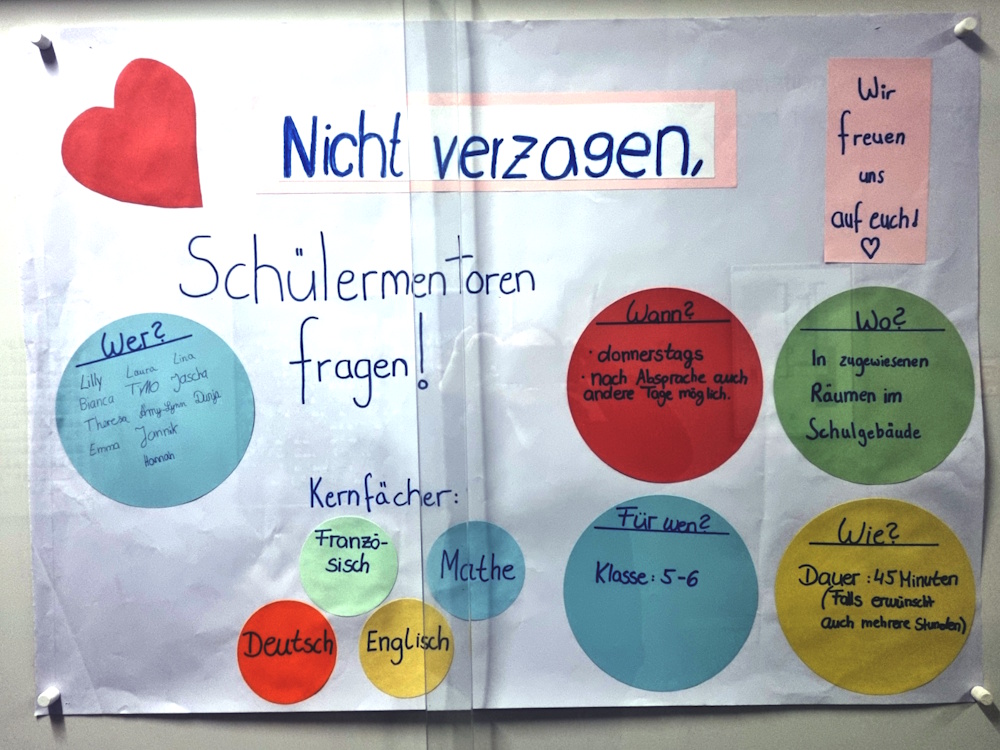 Nicht verzagen,
Schülermentoren
fragen!
Wir
freuen
uns
auf euch!
Wer?
Lilly Laura Lina
Bianca TIMO Jascha
Theresa Amy-Lynn Dunja
Emma Jannik
Hannah
Kernfächer:
Franzö-
sisch
Mathe
Deutsch
Englisch
Wann?
· donnerstags
· nach Absprache auch
andere Tage möglich.
Wo?
In zugewiesenen
Räumen im
Schulgebäude
Für wen?
Klasse: 5-6
Wie?
Dauer: 45 Minuten
(Falls erwünscht
auch mehrere Stunden)